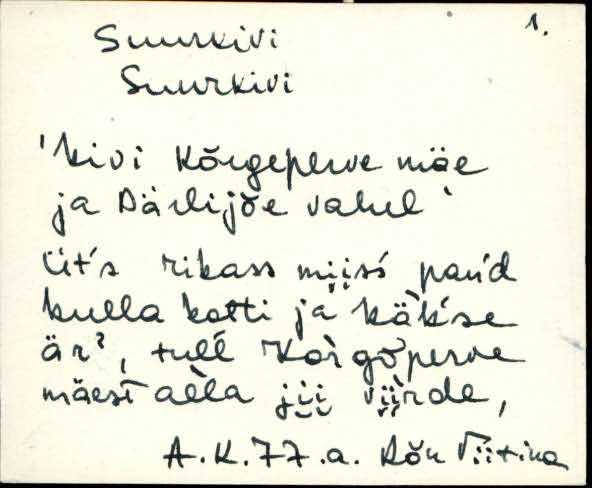 1.
Suurkivi
Suurkivi
'kivi Kõrgeperve mäe
ja Pärlijõe vahel'
üt's rikass miiss pańd
kulla kotti ja käkse
är?, tulĺ Korgõperve
mäest alla jii viirde,
A.K. 77.a. Rõu Viitina